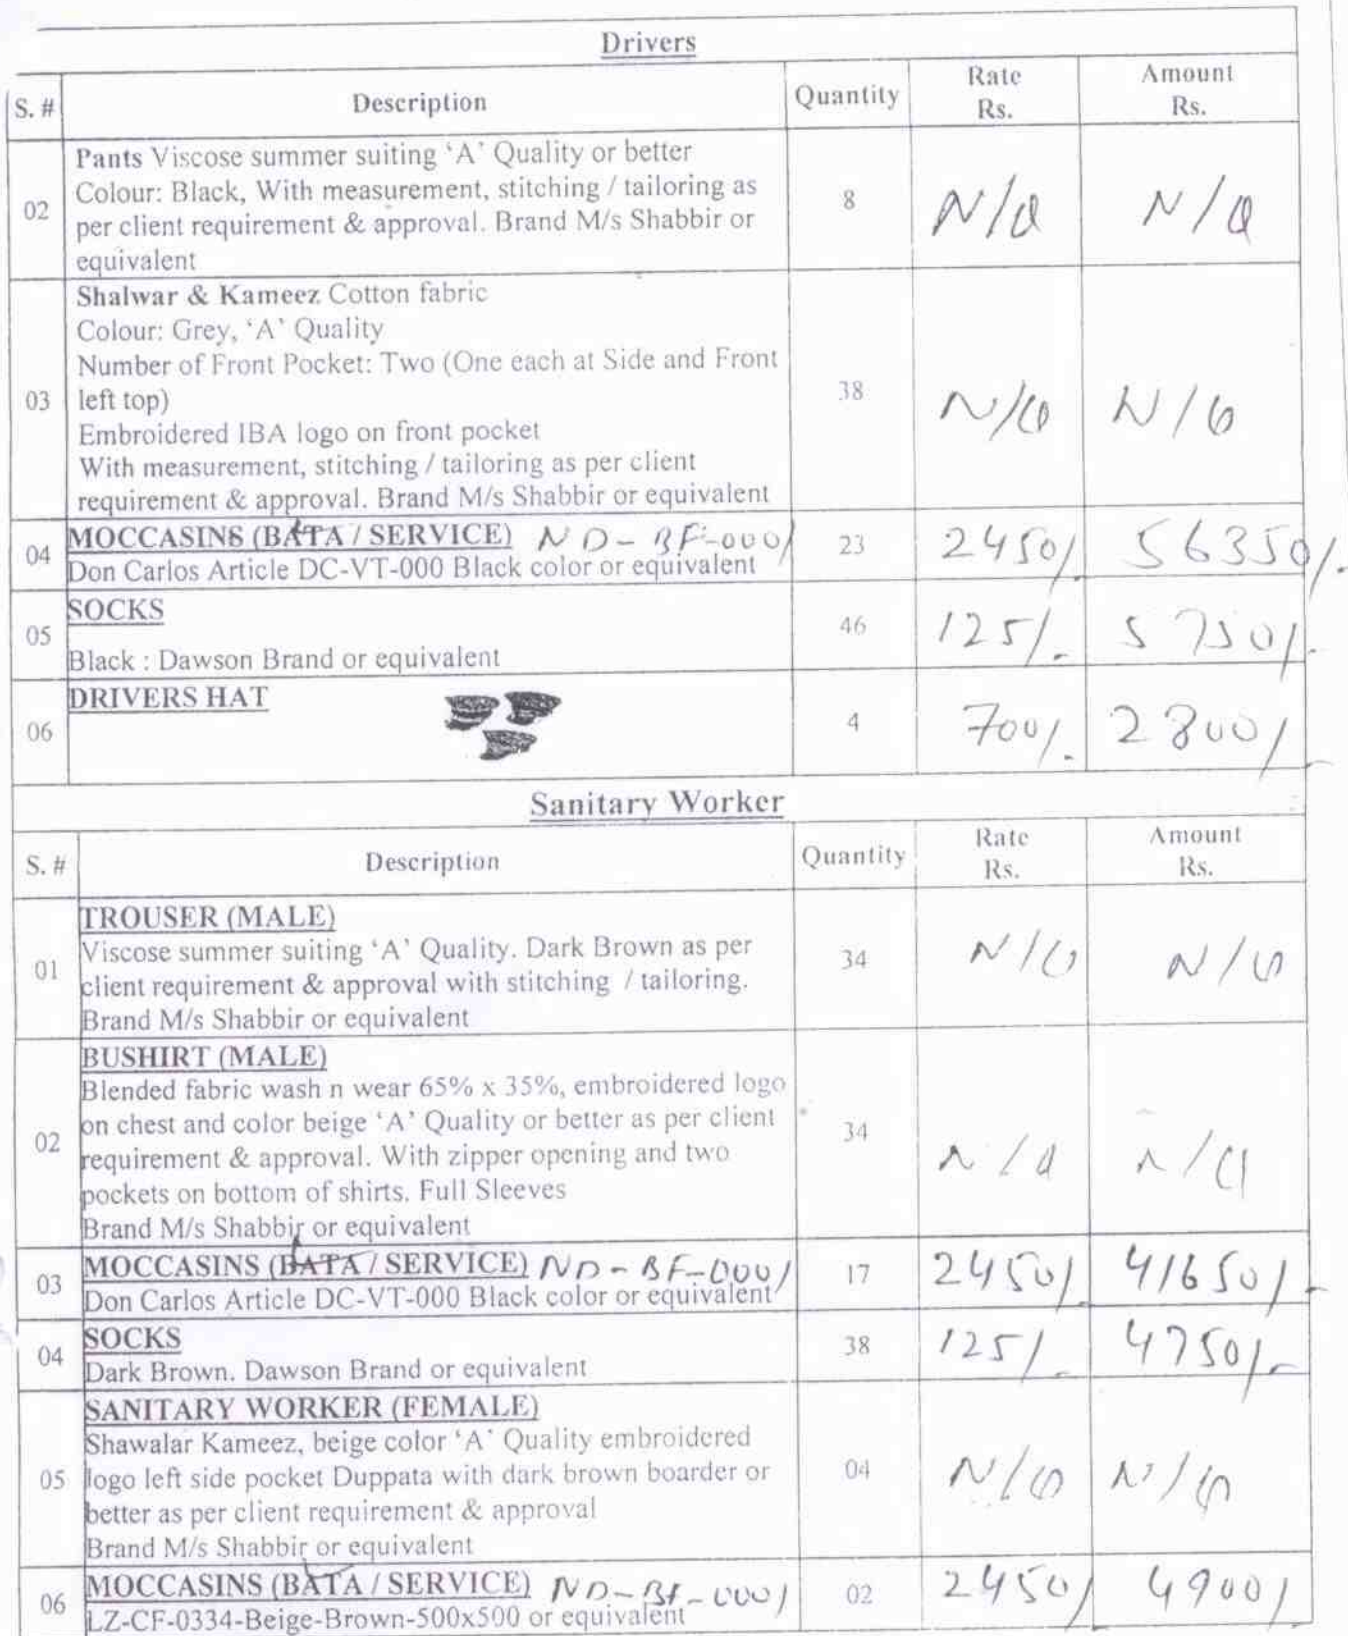 Drivers
S. # Description Quantity Rate Rs. Amount Rs.
02 Pants Viscose summer suiting ‘A’ Quality or better
Colour: Black, With measurement, stitching / tailoring as
per client requirement & approval. Brand M/s Shabbir or
equivalent
8 N/Q N/Q
03 Shalwar & Kameez Cotton fabric
Colour: Grey, ‘A’ Quality
Number of Front Pocket: Two (One each at Side and Front
left top)
Embroidered IBA logo on front pocket
With measurement, stitching / tailoring as per client
requirement & approval. Brand M/s Shabbir or equivalent
38 N/Q N/Q
04 MOCCASINS (BATA / SERVICE) ND-BF-0001
Don Carlos Article DC-VT-000 Black color or equivalent
23 2450/- 56350/-
05 SOCKS
Black : Dawson Brand or equivalent
46 125/- 5750/-
06 DRIVERS HAT
4 700/- 2800/-
Sanitary Worker
S. # Description Quantity Rate Rs. Amount Rs.
01 TROUSER (MALE)
Viscose summer suiting ‘A’ Quality. Dark Brown as per
client requirement & approval with stitching / tailoring.
Brand M/s Shabbir or equivalent
34 N/Q N/Q
02 BUSHIRT (MALE)
Blended fabric wash n wear 65% x 35%, embroidered logo
on chest and color beige ‘A’ Quality or better as per client
requirement & approval. With zipper opening and two
pockets on bottom of shirts. Full Sleeves
Brand M/s Shabbir or equivalent
34 N/Q N/Q
03 MOCCASINS (BATA / SERVICE) ND-BF-0001
Don Carlos Article DC-VT-000 Black color or equivalent
17 2450/- 41650/-
04 SOCKS
Dark Brown. Dawson Brand or equivalent
38 125/- 4750/-
05 SANITARY WORKER (FEMALE)
Shawalar Kameez, beige color ‘A’ Quality embroidered
logo left side pocket Duppata with dark brown boarder or
better as per client requirement & approval
Brand M/s Shabbir or equivalent
04 N/Q N/Q
06 MOCCASINS (BATA / SERVICE) ND-BF-0001
LZ-CF-0334-Beige-Brown-500x500 or equivalent
02 2450/ 4900/